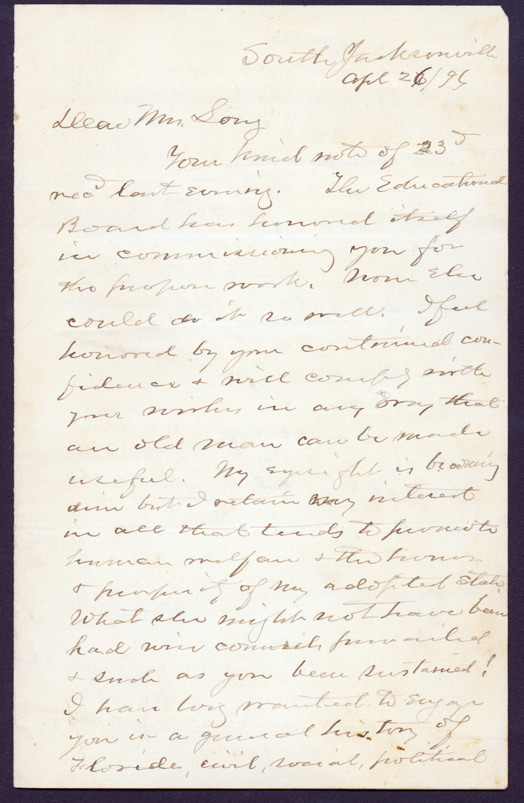 South Jacksonville
Apl 26/96
Dear Mrs. Long
Your kind note of 23d
recd last evening. The Educational
Board has honored itself
in commissioning you for
the proposed work. None Else
could do it so well. I feel
honored by your continued con-
fidence & will comply with
your wishes in any way that
an old man can be made
useful. My eyesight is becoming
dim but I retain my interest
in all that tends to promote
human welfare & the honor
& prosperity of my adopted State.
What she might not have been
had wise counsels prevailed
& such as you been sustained!
I have long wanted to engage
you in a general history of
Florida, civil, social, political